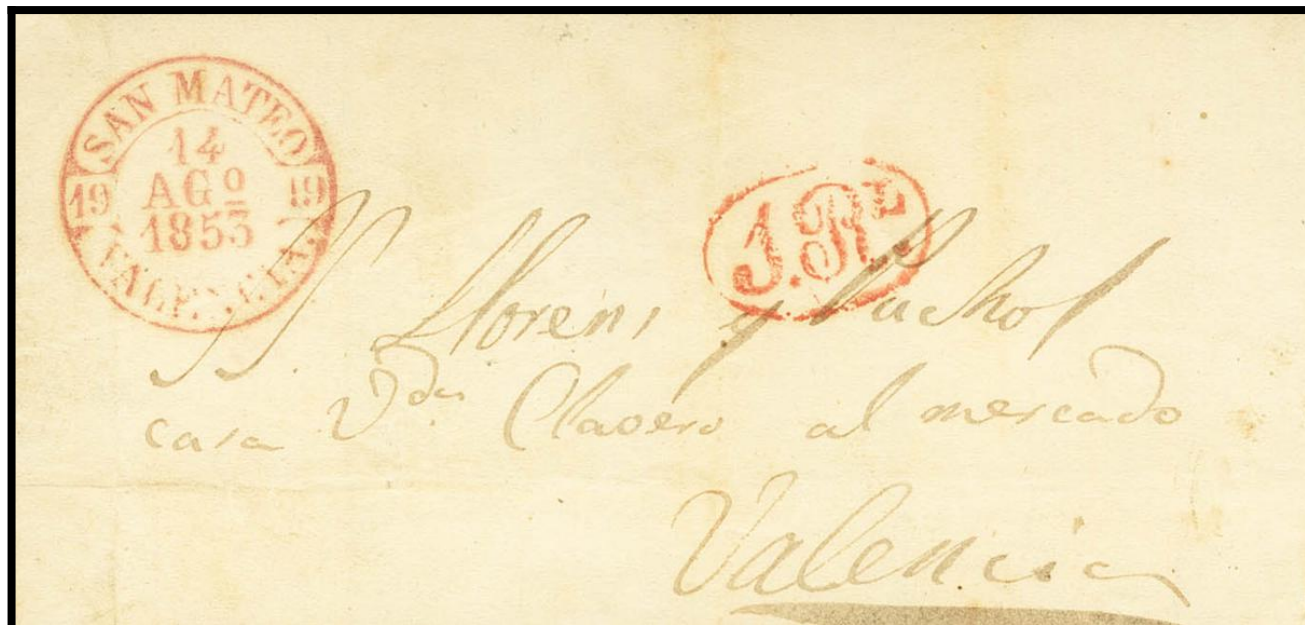 SAN MATEO
14
AGº
1853
19 19
VALENCIA.
1.Rˡ
Llorens y
casa V.da Clavero al mercado
Valencia